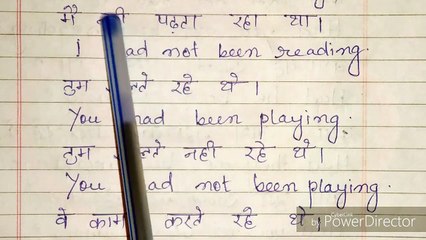 मैं पढ़ता रहा था।
I not been reading
तुम रहे थे।
You had been playing.
तुम नही रहे थे।
You not been playing.
वे काम करते रहे थे।
by PowerDirector